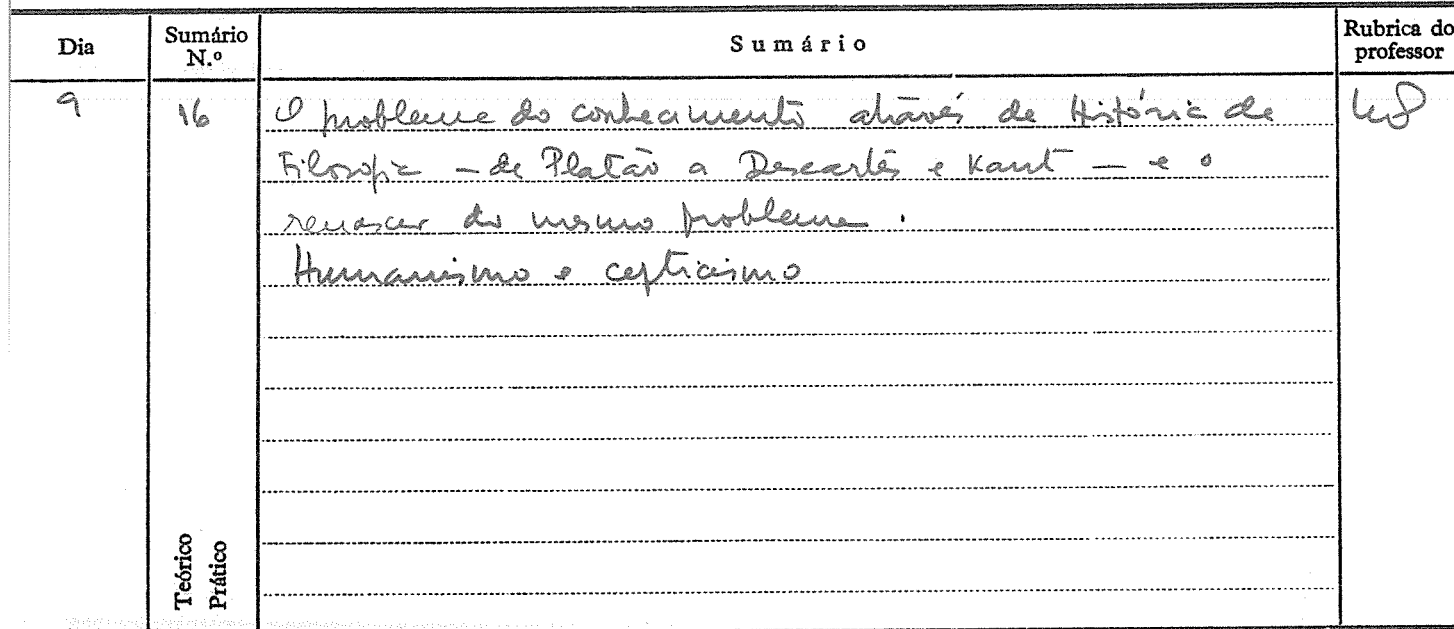 Dia
Sumário
N.º
Sumário
Rubrica do
professor
9
16
O problema do conhecimento através da História da
Filosofia — de Platão a Descartes e Kant — e o
renascer do mesmo problema.
Humanismo e cepticismo
Teórico
Prático